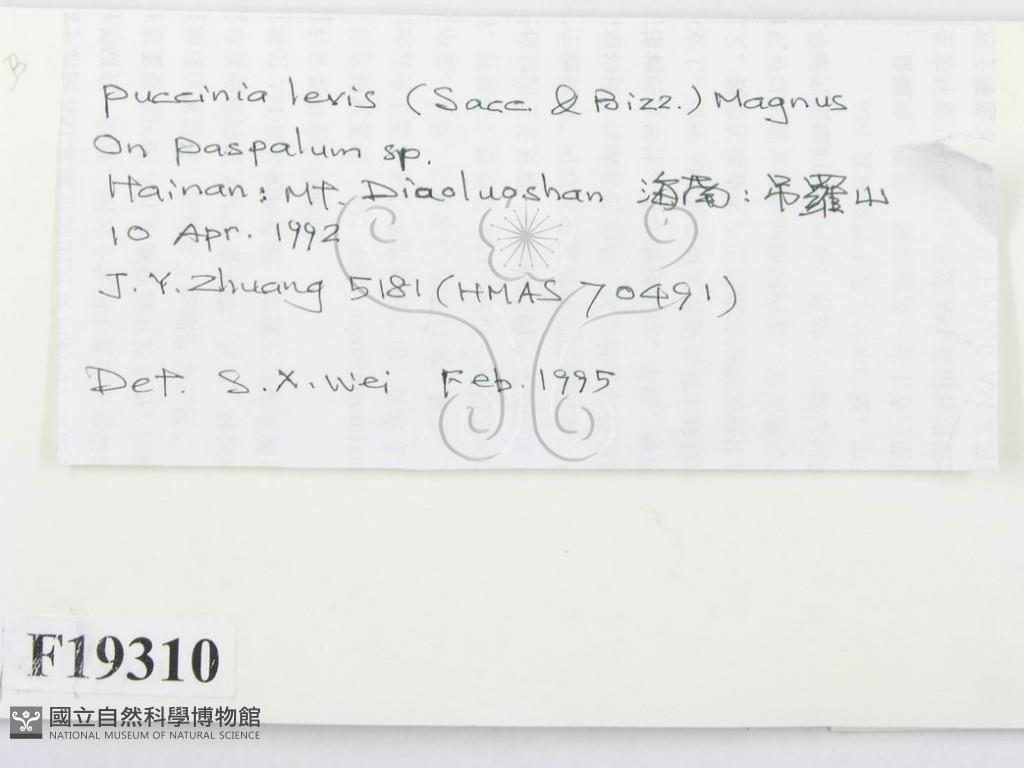 B
Puccinia levis (Sacc. & Bizz.) Magnus
On Paspalum sp.
Hainan: Mt. Diaoluoshan 海南: 吊羅山
10 Apr. 1992
J. Y. Zhuang 5181 (HMAS 70491)
Det. S. X. Wei Feb. 1995
F19310
國立自然科學博物館
NATIONAL MUSEUM OF NATURAL SCIENCE